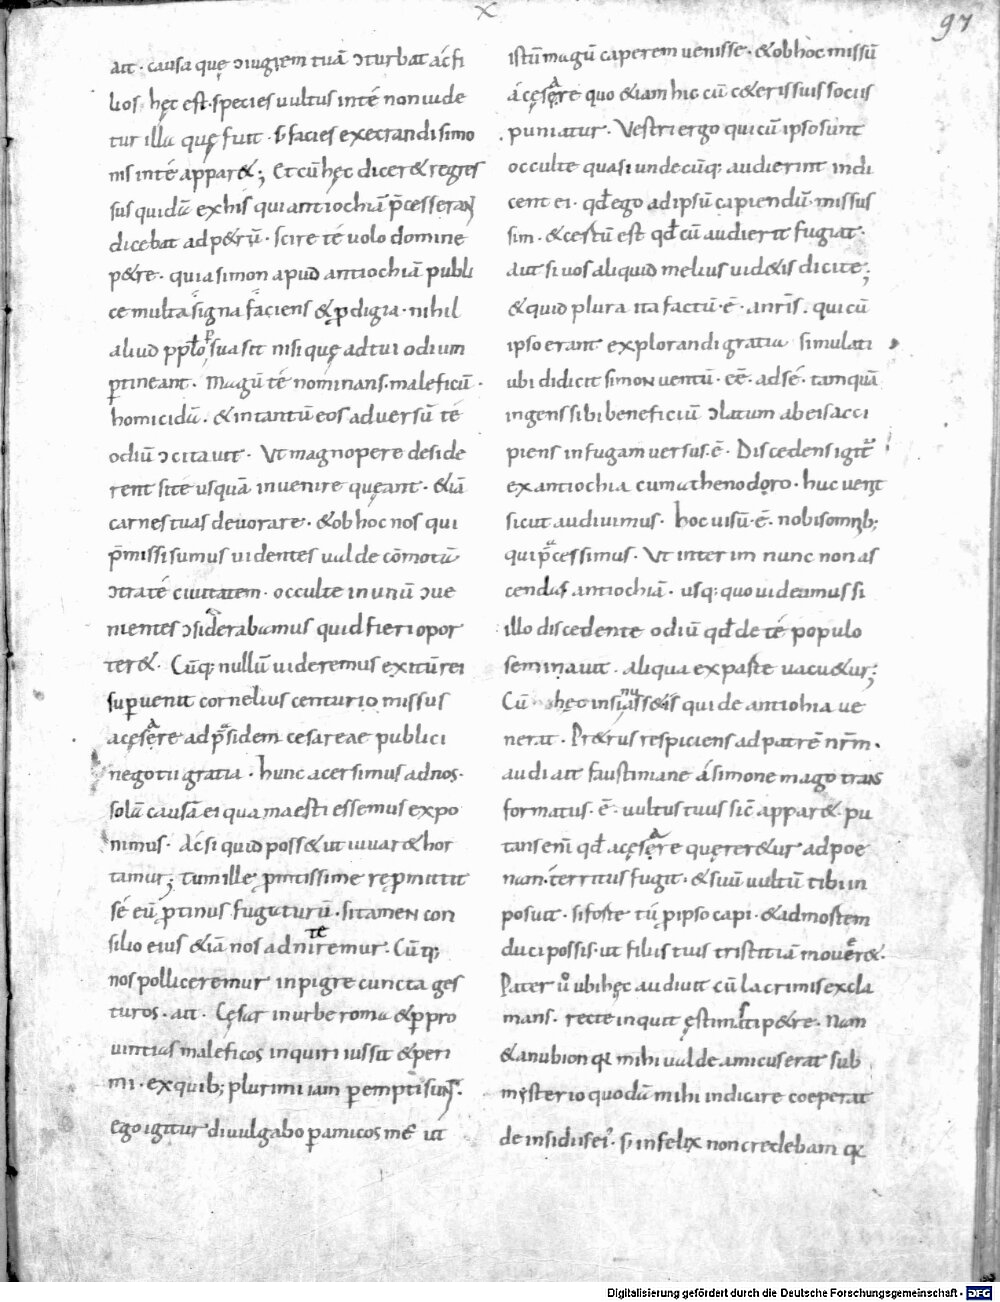 97
x
ait · causa quę ↄiugem tuā ↄturbat ac fi
lios · hęc est · species uultus inte non uide
tur illa quę fuit · s; facies execrandi simo
nis inte apparet; Et cū hęc diceret regres
sus quidā ex his qui antiochiā p̄cesserant
dicebat ad petrū · scire té uolo domine
petre · quia simon apud antiochiā publi
ce multa signa faciens et ꝓdigia · nihil
aliud pp̄lo suasit nisi quę ad tui odium
ꝑtineant · Magū té nominans · maleficū ·
homicidā · et in tantū eos aduersū té
odiū ↄcitauit · Ut magnopere deside
rent si te usquā inuenire queant · etiā
carnes tuas deuorare · et ob hoc nos qui
p̄missi sumus uidentes ualde cōmotā
ↄtra té ciuitatem · occulte in unū ↄue
nientes ↄsiderabamus quid fieri opor
teret · Cūq; nullū uideremus exitū rei
suꝑuenit cornelius centurio missus
acęsęre ad p̄sidem cesareae publici
negotii gratia · hunc acersimus ad nos ·
solā causā ei qua maesti essemus expo
nimus · Ac si quid posset ut iuuaret hor
tamur; tum ille ꝓmtissime repromittit
sé eū ꝓtinus fugaturū · si tamen con
silio eius etiā nos adniteremur · Cūq;
nos polliceremur inpigre cuncta ges
turos · ait · Cęsar in urbe roma et ꝑ pro
uintias maleficos inquiri iussit et peri
mi · ex quib; plurimi iam ꝑempti sunt ·
ego igitur diuulgabo ꝑ amicos mé ut
istū magū caperem uenisse · et ob hoc missū
acęsęre quo etiam hic cū ceteris suis sociis
puniatur · Vestri ergo qui cū ipso sunt
occulte quasi undecūq; audierint indi
cent ei · qđ ego ad ipsū capiendū missus
sim · et certū est qđ cū audierit fugiat ·
Aut si uos aliquid melius uidetis dicite;
et quid plura ita factū · ē · a nr̄is · qui cū
ipso erant explorandi gratia simulati
ubi didicit simon uentū · eē · ad sé · tamquā
ingens sibi beneficiū ↄlatum ab eis acci
piens in fugam uersus · ē · Discedens igit
ex antiochia cum athenodoro · huc uenit
sicut audiuimus · hoc uisū · ē · nobis omnib;
qui p̄cessimus · Ut interim nunc non as
cendas antiochiā · usq; quo uideamus si
illo discedente odiū qđ de té populo
seminauit · aliqua ex parte uacuetur;
Cū hęc insinuassent is qui de antiohia ue
nerat · Petrus respiciens ad patrē nr̄m ·
audi ait faustiniane a simone mago trans
formatus · ē · uultus tuus sic apparet pu
tans enī qđ acęsęre quęreretur ad poe
nam · territus fugit · et suū uultū tibi in
posuit · si forte tú ꝓ ipso capi · et ad mortem
duci possis · ut filiis tuis tristitiā moueret ·
Pater ū ubi hęc audiuit cū lacrimis excla
mans · recte inquit ęstimasti petre · Nam
et anubion qui mihi ualde amicus erat sub
mysterio quodā mihi indicare coeperat
de insidiis ei · s; infelix non credebam quia
Digitalisierung gefördert durch die Deutsche Forschungsgemeinschaft - DFG